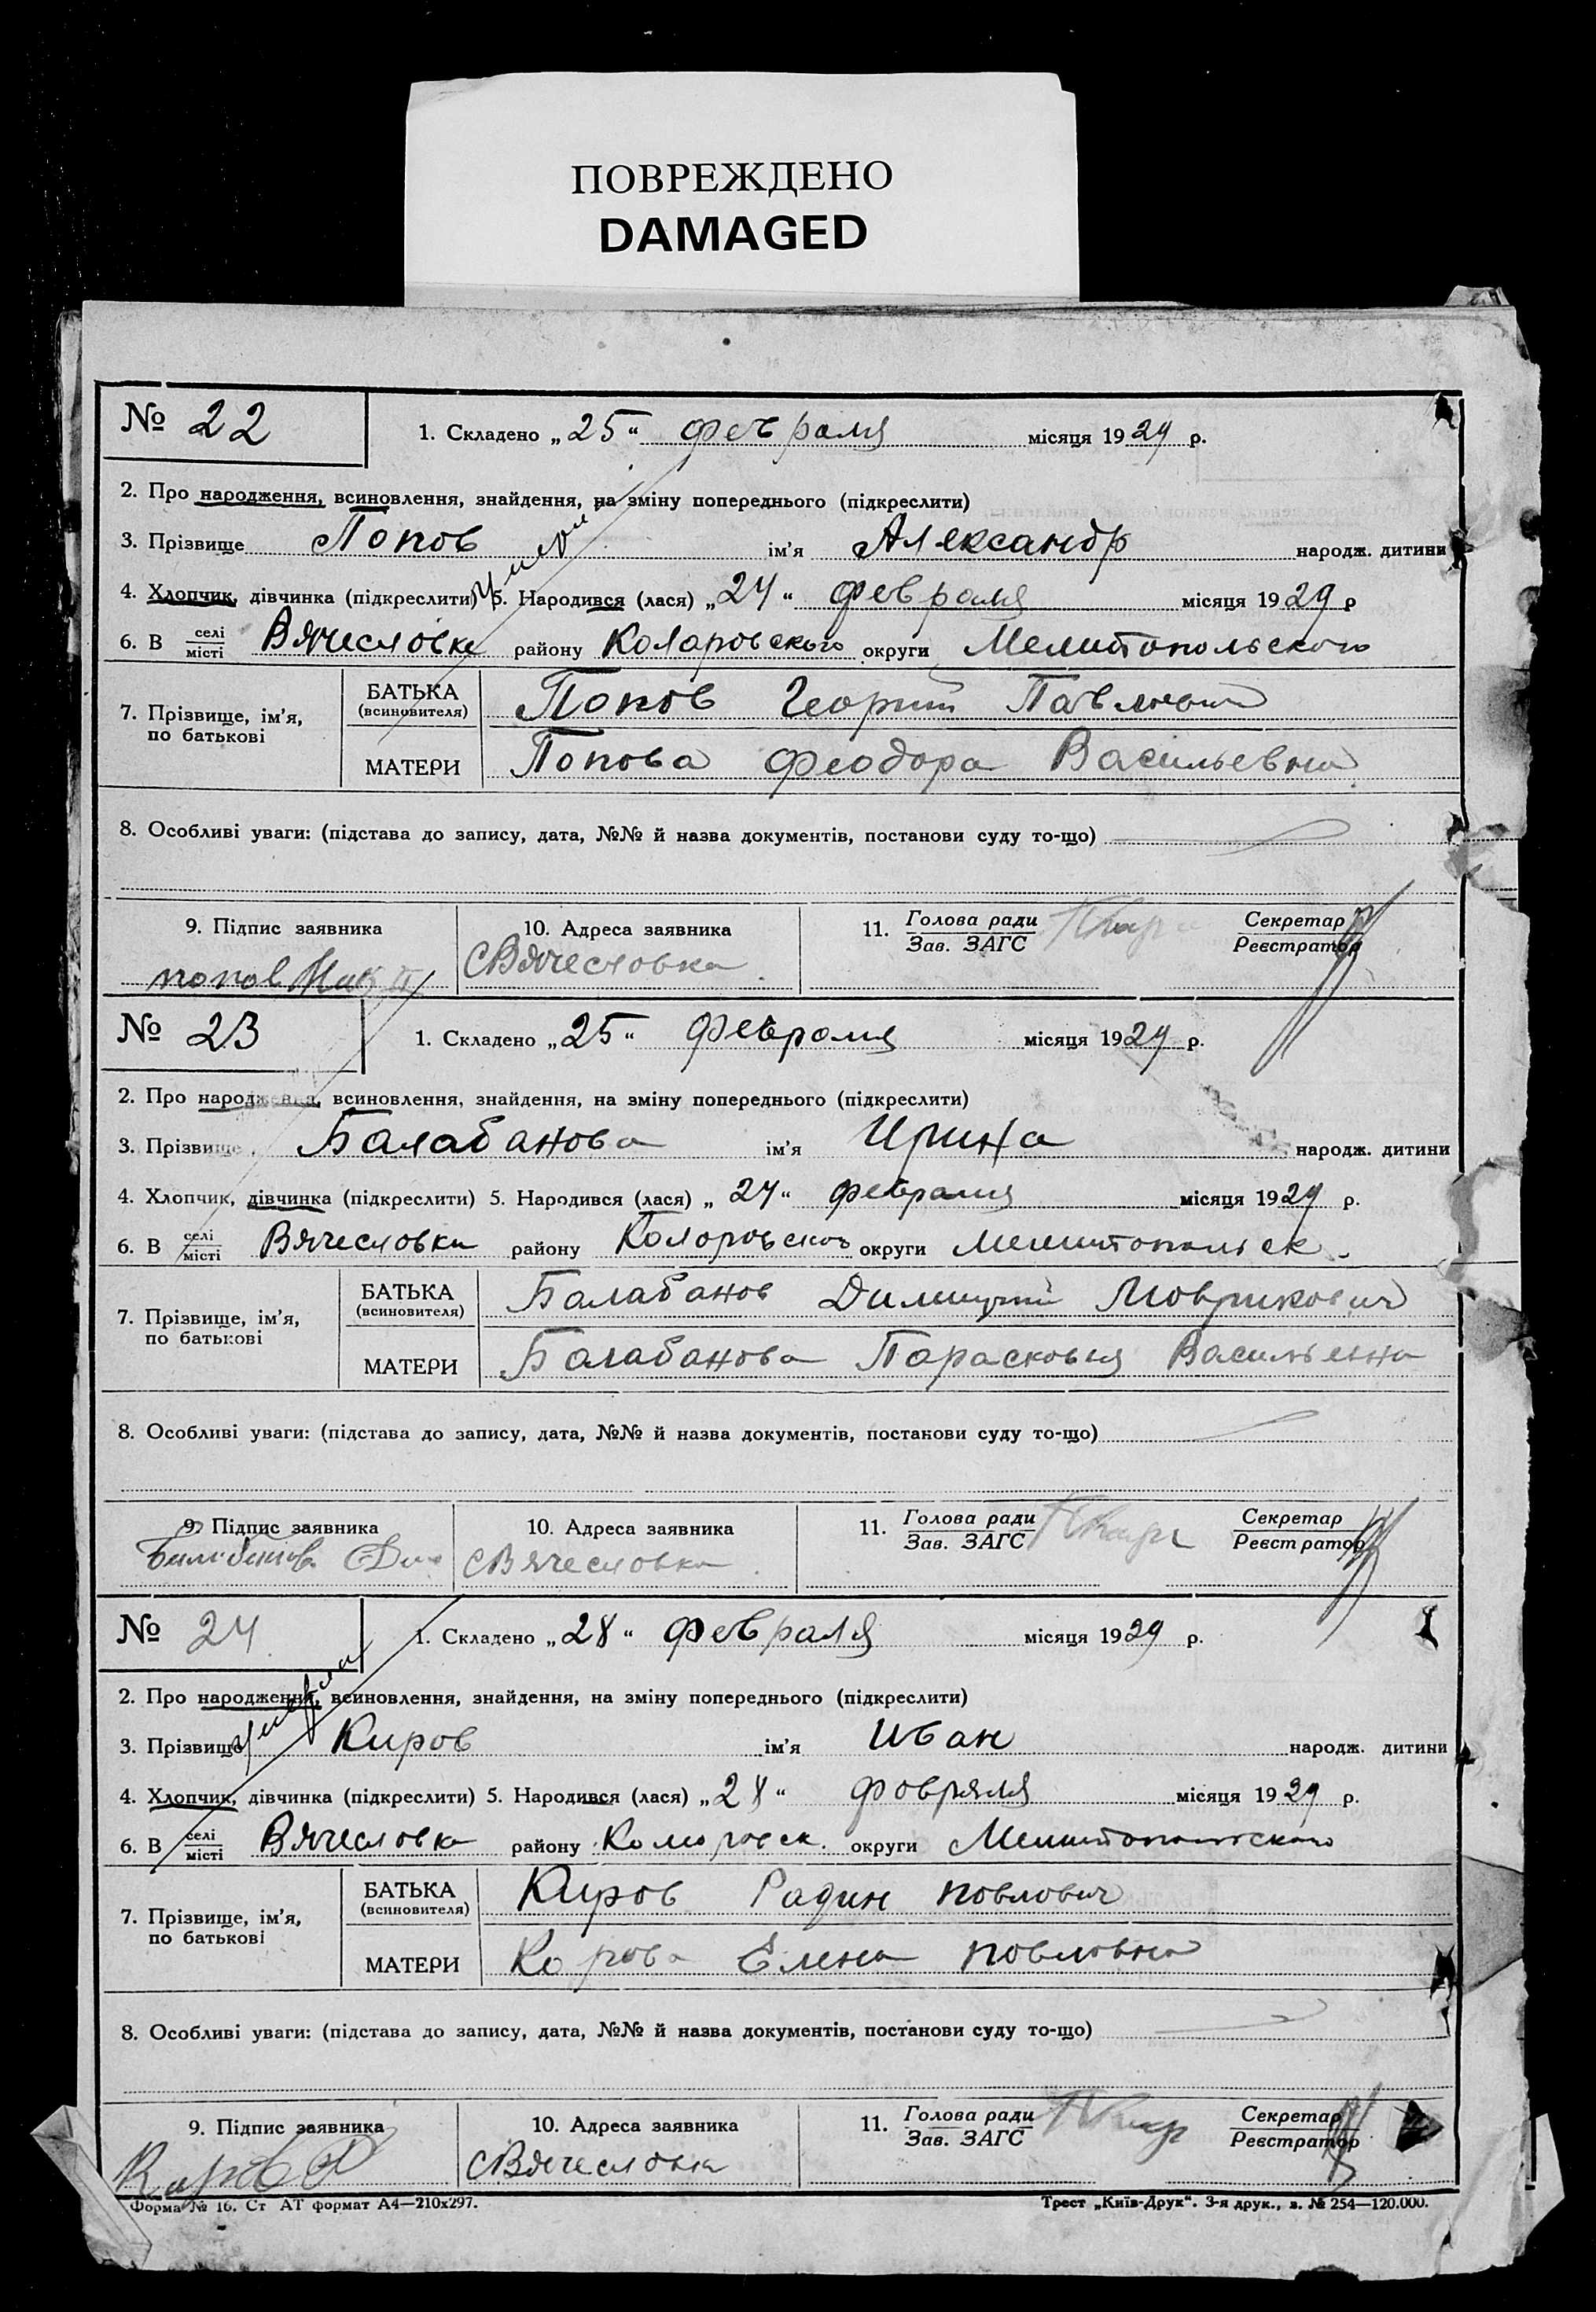 ПОВРЕЖДЕНО
DAMAGED
№ 22
1. Складено „25“ февраля місяця 1929 р.
2. Про народження, всиновлення, знайдення, на зміну попереднього (підкреслити)
3. Прізвище Попов ім'я Александр народж. дитини
4. Хлопчик, дівчинка (підкреслити) 5. Народився (лася) „24“ февраля місяця 1929 р
6. В селі місті Вячесловке району Коларовського округи Мелитопольского
7. Прізвище, ім'я, по батькові
БАТЬКА (всиновителя) Попов Георгий Павлович
МАТЕРИ Попова Феодора Васильевна
8. Особливі уваги: (підстава до запису, дата, №№ й назва документів, постанови суду то-що)
9. Підпис заявника
10. Адреса заявника
11. Голова ради Зав. ЗАГС
Секретар Реєстратор
попов
С Вячесловка
№ 23
1. Складено „25“ февраля місяця 1929 р.
2. Про народження, всиновлення, знайдення, на зміну попереднього (підкреслити)
3. Прізвище Балабанова ім'я Ирина народж. дитини
4. Хлопчик, дівчинка (підкреслити) 5. Народився (лася) „24“ февраля місяця 1929 р.
6. В селі місті Вячесловки району Коларовского округи Мелитопольск.
7. Прізвище, ім'я, по батькові
БАТЬКА (всиновителя) Балабанов Димитрий
МАТЕРИ Балабанова Парасковья Васильевна
8. Особливі уваги: (підстава до запису, дата, №№ й назва документів, постанови суду то-що)
9. Підпис заявника
10. Адреса заявника
11. Голова ради Зав. ЗАГС
Секретар Реєстратор
С Вячесловка
№ 24
1. Складено „28“ февраля місяця 1929 р.
умер
2. Про народження, всиновлення, знайдення, на зміну попереднього (підкреслити)
3. Прізвище Киров ім'я Иван народж. дитини
4. Хлопчик, дівчинка (підкреслити) 5. Народився (лася) „28“ февраля місяця 1929 р.
6. В селі місті Вячесловка району Коларовск. округи Мелитопольского
7. Прізвище, ім'я, по батькові
БАТЬКА (всиновителя) Киров Радин Повлович
МАТЕРИ Кирова Елена Повловна
8. Особливі уваги: (підстава до запису, дата, №№ й назва документів, постанови суду то-що)
9. Підпис заявника
10. Адреса заявника
11. Голова ради Зав. ЗАГС
Секретар Реєстратор
Киров
С Вячесловка
Форма № 16. Ст АТ формат А4—210x297.
Трест „Київ-Друк“. 3-я друк., з. № 254—120.000.